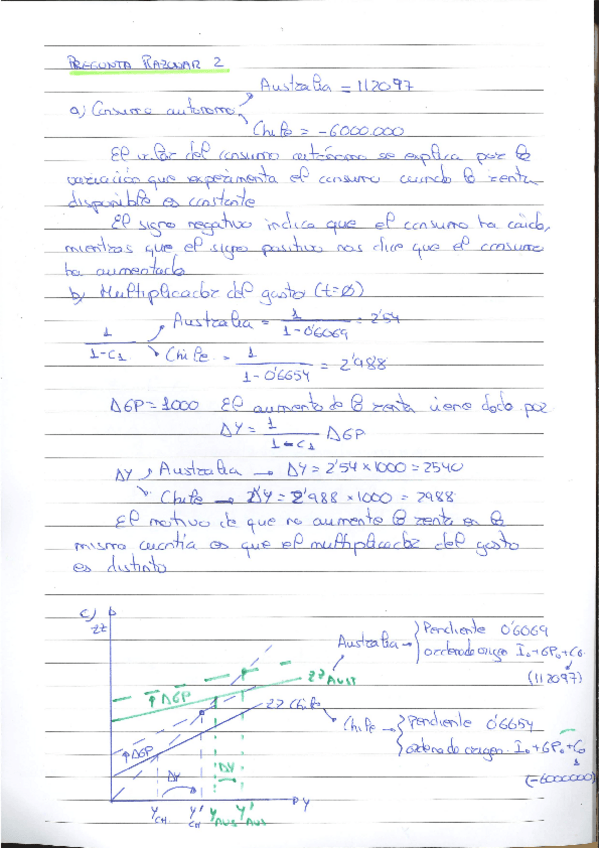 PREGUNTA RAZONAR 2
Australia = 112097
a) Consumo autónomo
Chile = -6000.000
El valor del consumo autónomo se explica por la
variación que experimenta el consumo cuando la renta
disponible es constante
El signo negativo indica que el consumo ha caído,
mientras que el signo positivo nos dice que el consumo
ha aumentado
b) Multiplicador del gasto (t=ø)
1/1-C1 Australia = 1/1-0'6069 = 2'54
Chile = 1/1-0'6654 = 2'988
ΔGP = 1000 El aumento de la renta viene dado por
ΔY = 1/1-C1 ΔGP
ΔY Australia → ΔY = 2'54 x 1000 = 2540
Chile → ΔY = 2'988 x 1000 = 2988
El motivo de que no aumente la renta en la
misma cuantía es que el multiplicador del gasto
es distinto
c)
ZZ
Australia → Pendiente 0'6069
ordenada origen I₀+GP₀+C₀
(112097)
ZZ AUST
↑ΔGP
ZZ Chile
Chile → Pendiente 0'6654
ordenada origen I₀+GP₀+C₀
(-6000000)
↑ΔGP
ΔY
ΔY
Y CH Y' CH Y AUS Y' AUS
Y